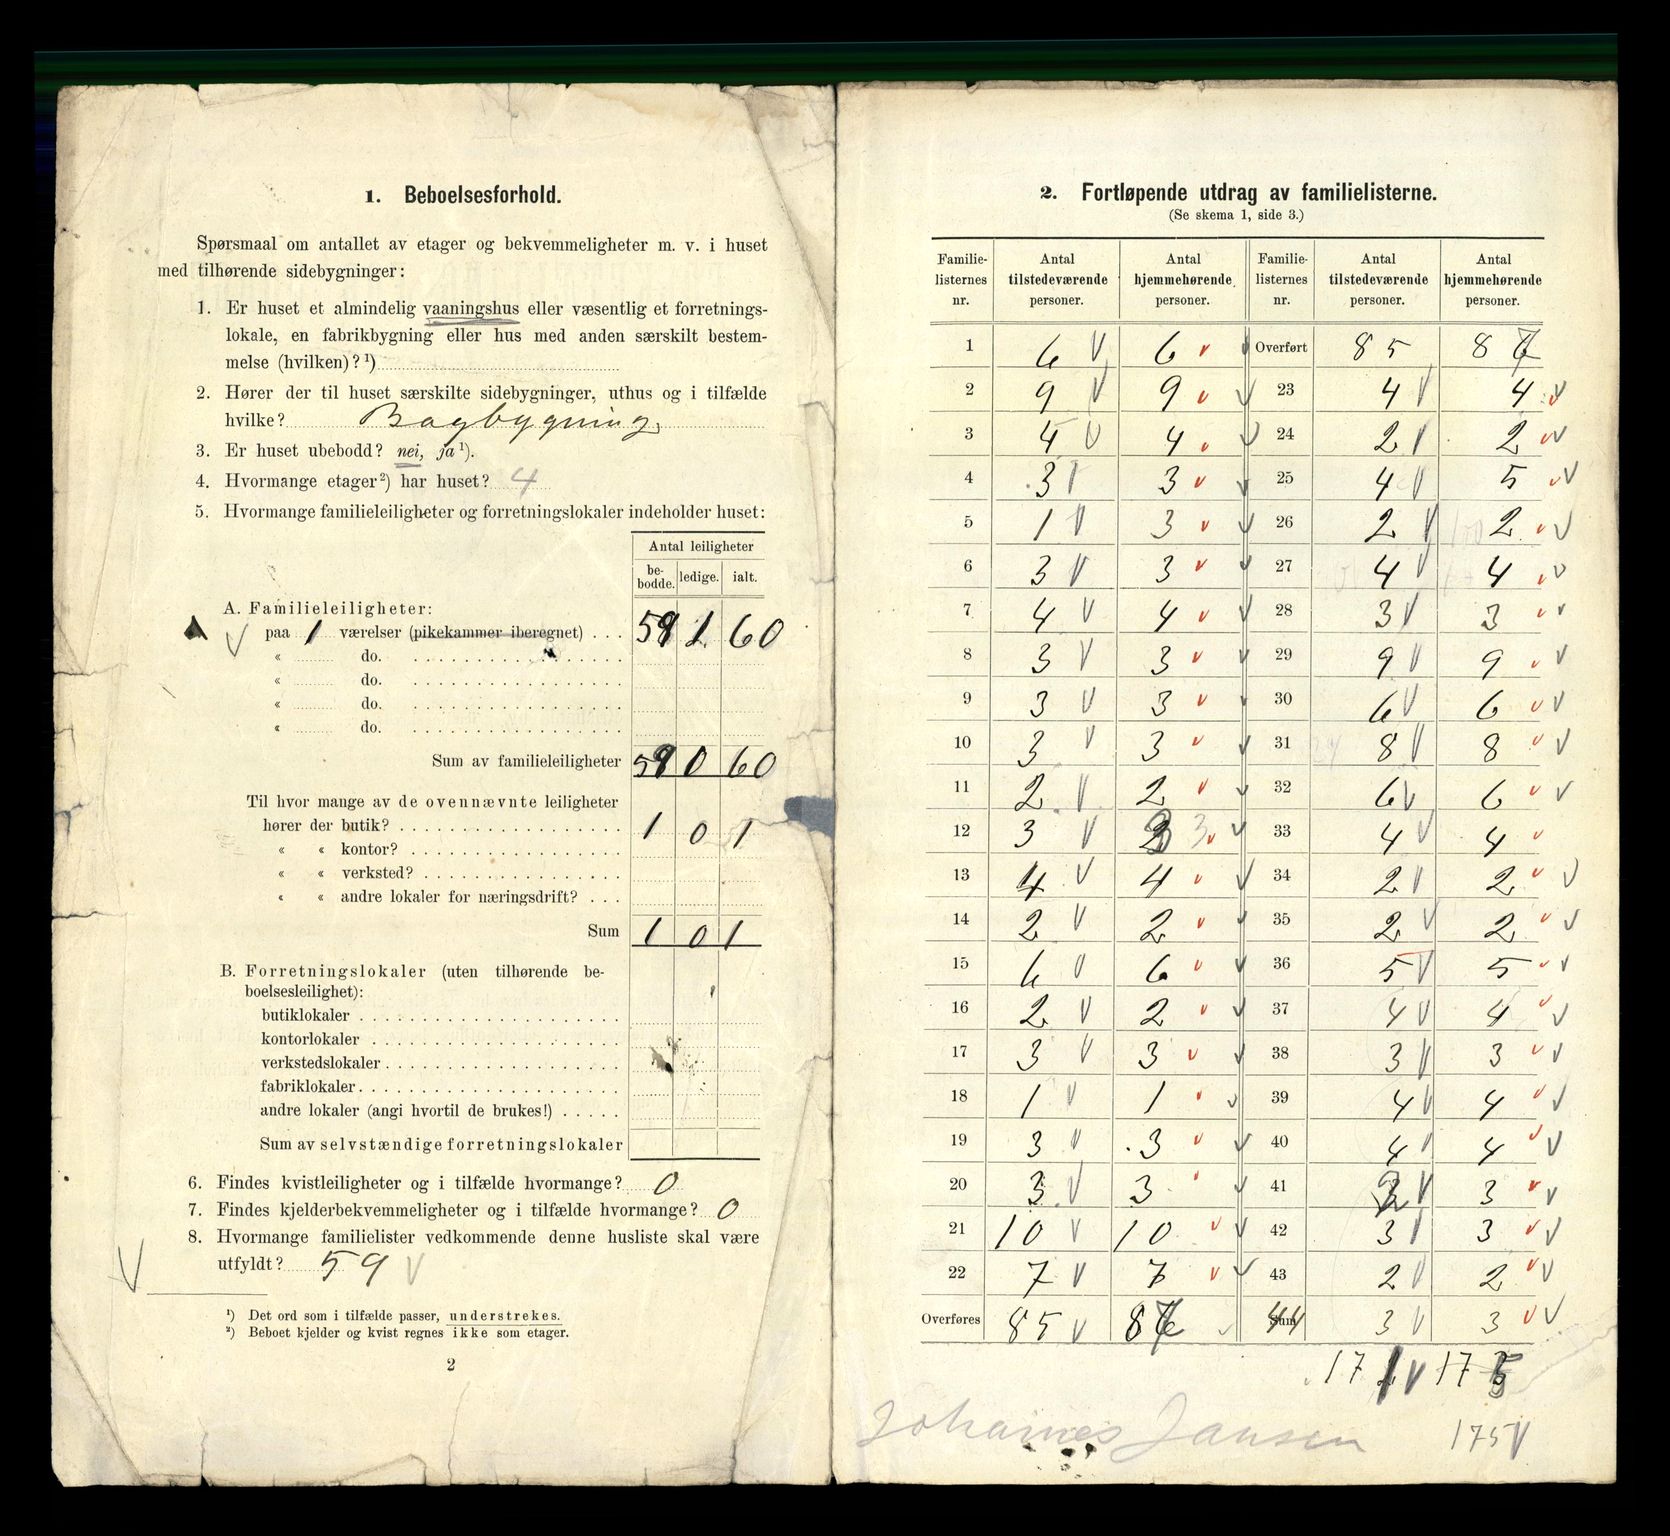 1. Beboelsesforhold.
Spørsmaal om antallet av etager og bekvemmeligheter m. v. i huset
med tilhørende sidebygninger:
1. Er huset et almindelig vaaningshus eller væsentlig et forretnings-
lokale, en fabrikbygning eller hus med anden særskilt bestem-
melse (hvilken)? ¹)
2. Hører der til huset særskilte sidebygninger, uthus og i tilfælde
hvilke? Bagbygning,
3. Er huset ubebodd? nei, ja ¹).
4. Hvormange etager ²) har huset? 4
5. Hvormange familieleiligheter og forretningslokaler indeholder huset:
Antal leiligheter
be-
bodde. ledige. ialt.
A. Familieleiligheter:
paa 1 værelser (pikekammer iberegnet) . . . 59 1 60
« do.
« do.
« do.
« do.
Sum av familieleiligheter 59 0 60
Til hvor mange av de ovennævnte leiligheter
hører der butik? 1 0 1
« « kontor?
« « verksted?
« « andre lokaler for næringsdrift? . . .
Sum 1 0 1
B. Forretningslokaler (uten tilhørende be-
boelsesleilighet):
butiklokaler
kontorlokaler
verkstedslokaler
fabriklokaler
andre lokaler (angi hvortil de brukes!)
Sum av selvstændige forretningslokaler
6. Findes kvistleiligheter og i tilfælde hvormange? 0
7. Findes kjelderbekvemmeligheter og i tilfælde hvormange? 0
8. Hvormange familielister vedkommende denne husliste skal være
utfyldt? 59
¹) Det ord som i tilfælde passer, understrekes.
²) Beboet kjelder og kvist regnes ikke som etager.
2
2. Fortløpende utdrag av familielisterne.
(Se skema 1, side 3.)
Familie- Antal Antal Familie- Antal Antal
listernes tilstedeværende hjemmehørende listernes tilstedeværende hjemmehørende
nr. personer. personer. nr. personer. personer.
1 6 6 Overført 85 87
2 9 9 23 4 4
3 4 4 24 2 2
4 3 3 25 4 5
5 1 3 26 2 2
6 3 3 27 4 4
7 4 4 28 3 3
8 3 3 29 9 9
9 3 3 30 6 6
10 3 3 31 8 8
11 2 2 32 6 6
12 3 3 3 33 4 4
13 4 4 34 2 2
14 2 2 35 2 2
15 6 6 36 5 5
16 2 2 37 4 4
17 3 3 38 3 3
18 1 1 39 4 4
19 3 3 40 4 4
20 3 3 41 2 3
21 10 10 42 3 3
22 7 7 43 2 2
Overføres 85 87 Sum 44 3 3
171 175
Johannes Jansen 175